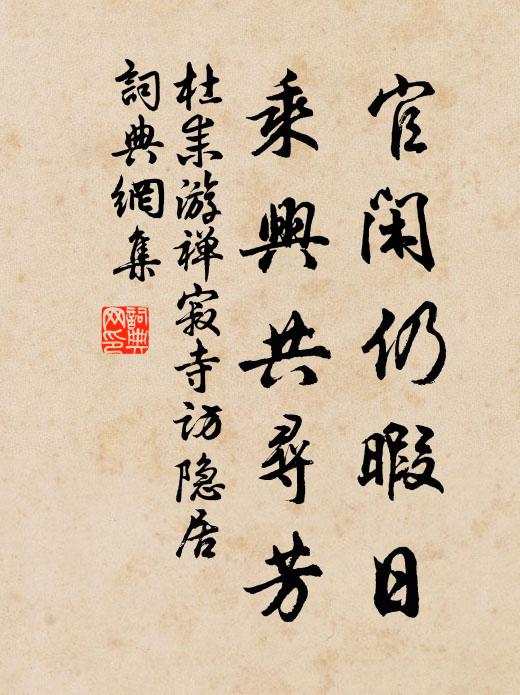 官閑仍暇日
乘興共尋芳
杜耒游禅寂寺访隐居
詞典網集
詞典網印